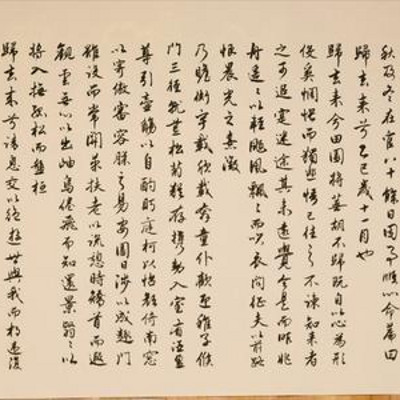 秋及冬在官八十餘日因事順心命篇曰
歸去來兮乙巳歲十一月也
歸去來兮田園將蕪胡不歸既自以心為形
役奚惆悵而獨悲悟已往之不諫知來者
之可追實迷途其未遠覺今是而昨非
舟遙遙以輕颺風飄飄而吹衣問征夫以前路
恨晨光之熹微
乃瞻衡宇載欣載奔童仆歡迎稚子候
門三徑就荒松菊猶存攜幼入室有酒盈
尊引壺觴以自酌眄庭柯以怡顏倚南窗
以寄傲審容膝之易安園日涉以成趣門
雖設而常關策扶老以流憩時矯首而遐
觀雲無心以出岫鳥倦飛而知還景翳翳以
將入撫孤松而盤桓
歸去來兮請息交以絕遊世與我而相違復